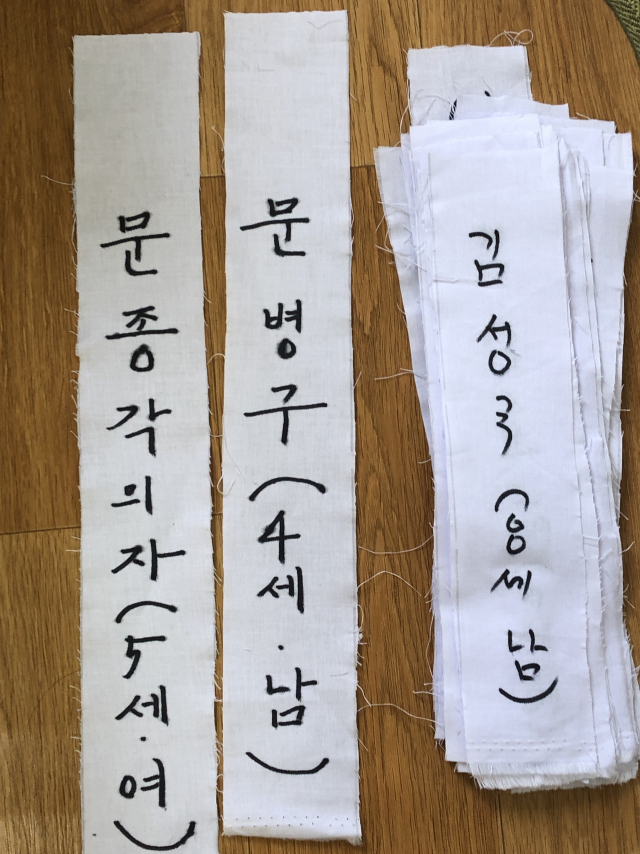 문종각의자(5세·여)
문병구(4세·남)
김성국(8세남)